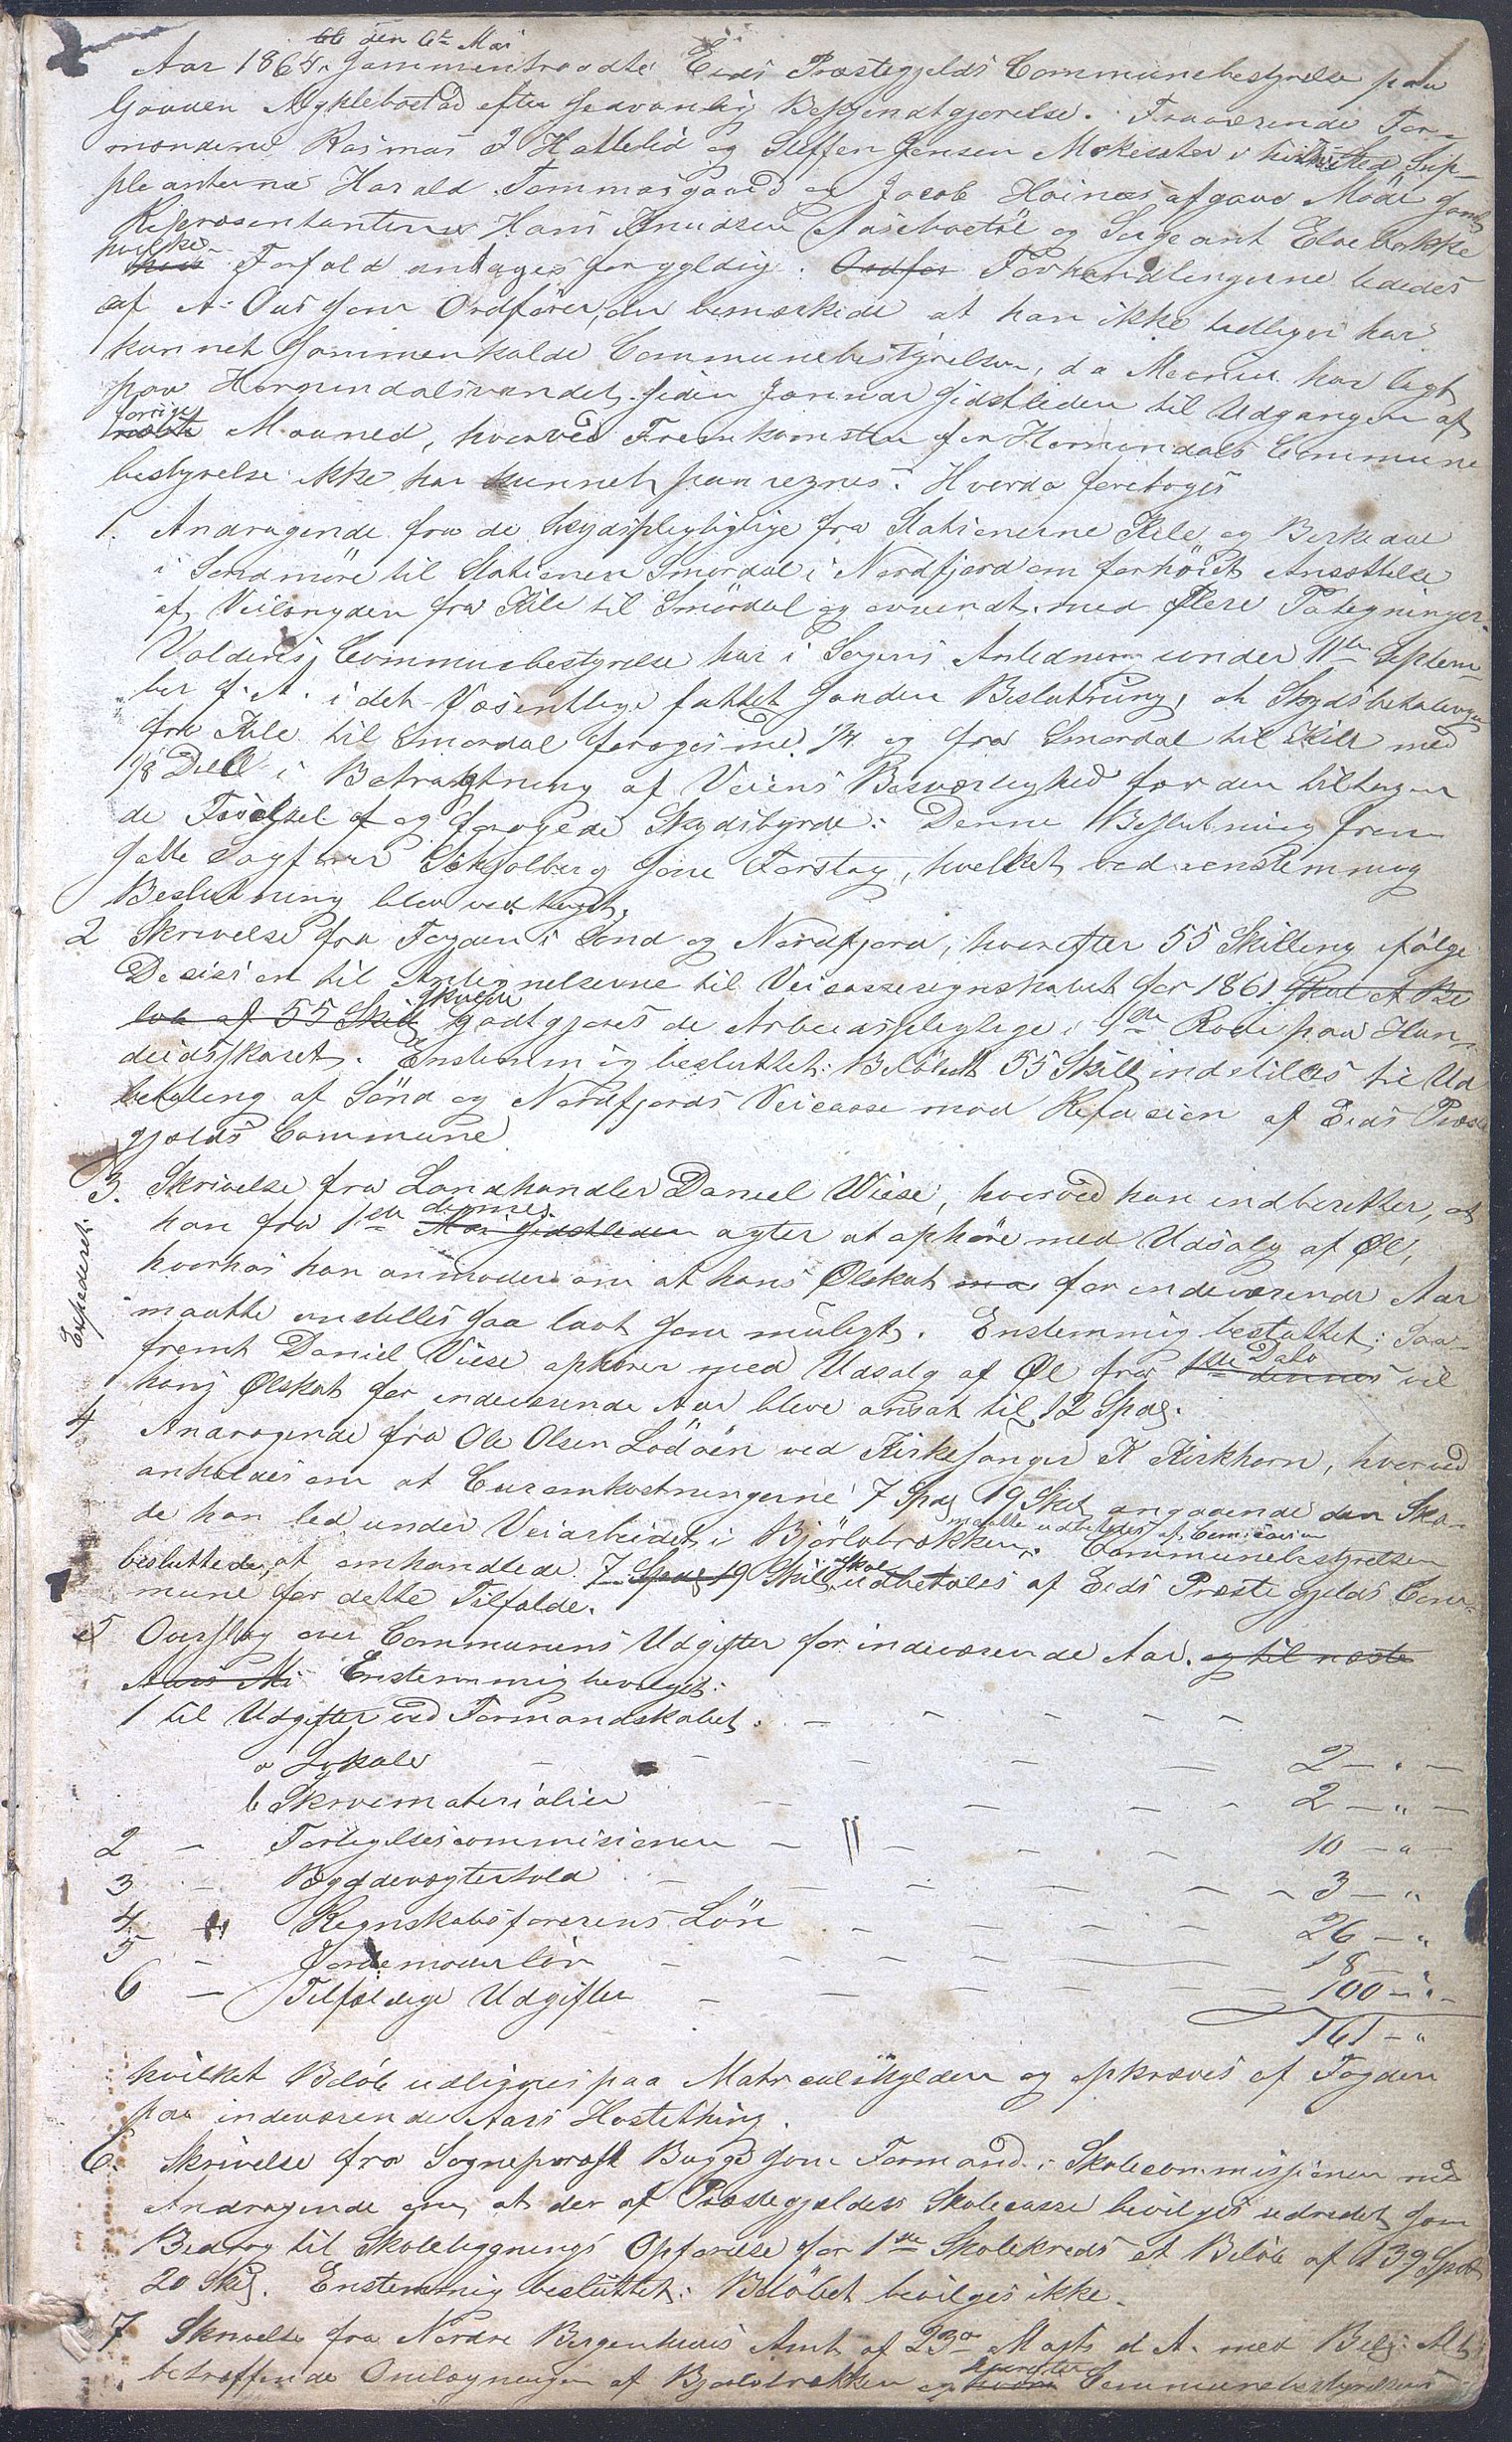 den 6te Mai
Aar 1864 sammentraadte Eids Præstegjelds Communebestyrelse paa
Gaarden Myklebostad efter sedvanlig Bekjendtgjørelse. Fraværende For-
mændene Rasmus Hatledid og Steffen Jensen Sup-
pleanterne Harald Tommasgaard og Jacob Hoinæs afgave Møde samt
Repræsentanterne Hans Knudsen Aaseboetöl og Sergeant Elvebakke
hvilkes Forfald antages for gyldig. Ordfør Forhandlingerne lededes
af A. Ous som Ordfører, der bemærkede at han ikke tidligere har
kunnet sammenkalde Communebestyrelsen, da Meenis har ligt
paa Hornindalsvandet siden Januar sidstleden til Udgangen af
forrige næste Maaned, hvorved Fremkomsten for Hornindals Commune
bestyrelse ikke har kunnet paaregnes. Hvorda foretoges
1. Andragende fra de Skydspligtige fra Stationerne Kile og Birkedal
i Søndmöre til Stationen Smördal i Nordfjord om forhöiet Ansættelse
af Veilængden fra Kile til Smördal og omvendt med flere Pategninger.
Voldens Communebestyrelse har i Sagens Anledning under 11te Septem-
ber f. A. i det Væsentlige fattet saadan Beslutning, at Skydsbetalingen
fra Kile til Smørdal forøges med 1/4 og fra Smørdal til Kile med
1/8 Deel i Betragtning af Veiens Besværlighed for den tiltagen
de Færdsel og forøgede Skydsbyrde. Denne Beslutning frem
satte Sagfører Schjølberg som Forslag, hvilket ved eenstemmig
Beslutning blev vedtaget.
2 Skrivelse fra Fogden i Sönd og Nordfjord, hvorefter 55 Skilling ifølge
Decision til Antegnelserne til Veicasseregnskabet for 1861 skal et Be
løb af 55 Skill skulde godtgjøres de Arbeidspligtige i Rode paa Hun-
deidsskaret. Enstemmig besluttet: Beløbet 55 Skill indstilles til Ud
betaling af Sönd og Nordfjords Veicasse mod Refusion af Eids Præste
gjelds Commune
3. Skrivelse fra Landhandler Daniel Wiese, hvorved han indberetter, at
Expederet.
han fra 1ste dennes Mai sidstleden agter at ophøre med Udsalg af Øl,
hvorhos han anmoder om at hans Ølskat ma for indeværende Aar
maatte anstilles saa lavt som muligt. Enstemmig besluttet: Saa-
fremt Daniel Wiese ophører med Udsalg af Øl fra 1ste dennes Dato vil
hans Ølskat for indeværende Aar blive ansat til 12 Spd.
4 Andragende fra Ole Olsen Lödöen ved Kirkesanger K Kirkhorn, hvorved
anholdes om at Curomkostningerne 7 Spd 19 Skil angaaende den Ska-
de han led under Veiarbeidet i Bjørlobrækken, maatte udbetales af Communen Communebestyrelsen
besluttede, at omhandlede 7 Spd 19 Skill skal udbetales af Eids Præstegjelds Com-
mune for dette Tilfælde.
5 Overslag over Communens Udgifter for indeværende Aar. og til næste
Aars Mi Enstemmig bevilget:
1 til Udgifter ved Formandskabet. — — — — —
a Lokale — — — — — 2 — " —
b Skrivematerialier — — — — 2 — " —
2 — Forligelsescommisionen — — — — 10 — " —
3 — Bøgdevægterhold — — — — — 3 — "
4 — Regnskabsførerens Lön — — — — 26 — "
5 — Jordemoder lön — — — — — 18 —
6 — Tilfældige Udgifter — — — — — 100 — " —
161 — "
hvilket Beløb udlignes paa Matrculskylden og opkræves af Fogden
paa indeværende Aars Høstething.
6. Skrivelse fra Sognepræst Bugge som Formand i Skolecommissionen med
Andragende om, at der af Præstegjeldets Skolecasse bevilges udredet som
Bidrag til Skolebygnings Opførelse for 1ste Skolekreds et Beløb af 139 Spd
20 Skil. Enstemmig besluttet: Beløbet bevilges ikke.
7 Skrivelse fra Nordre Bergenhuus Amt af 23de Marts d. A. med Bilg. Alt
betreffende Omlægningen af Bjørlobrækken og Communebestyrelsens